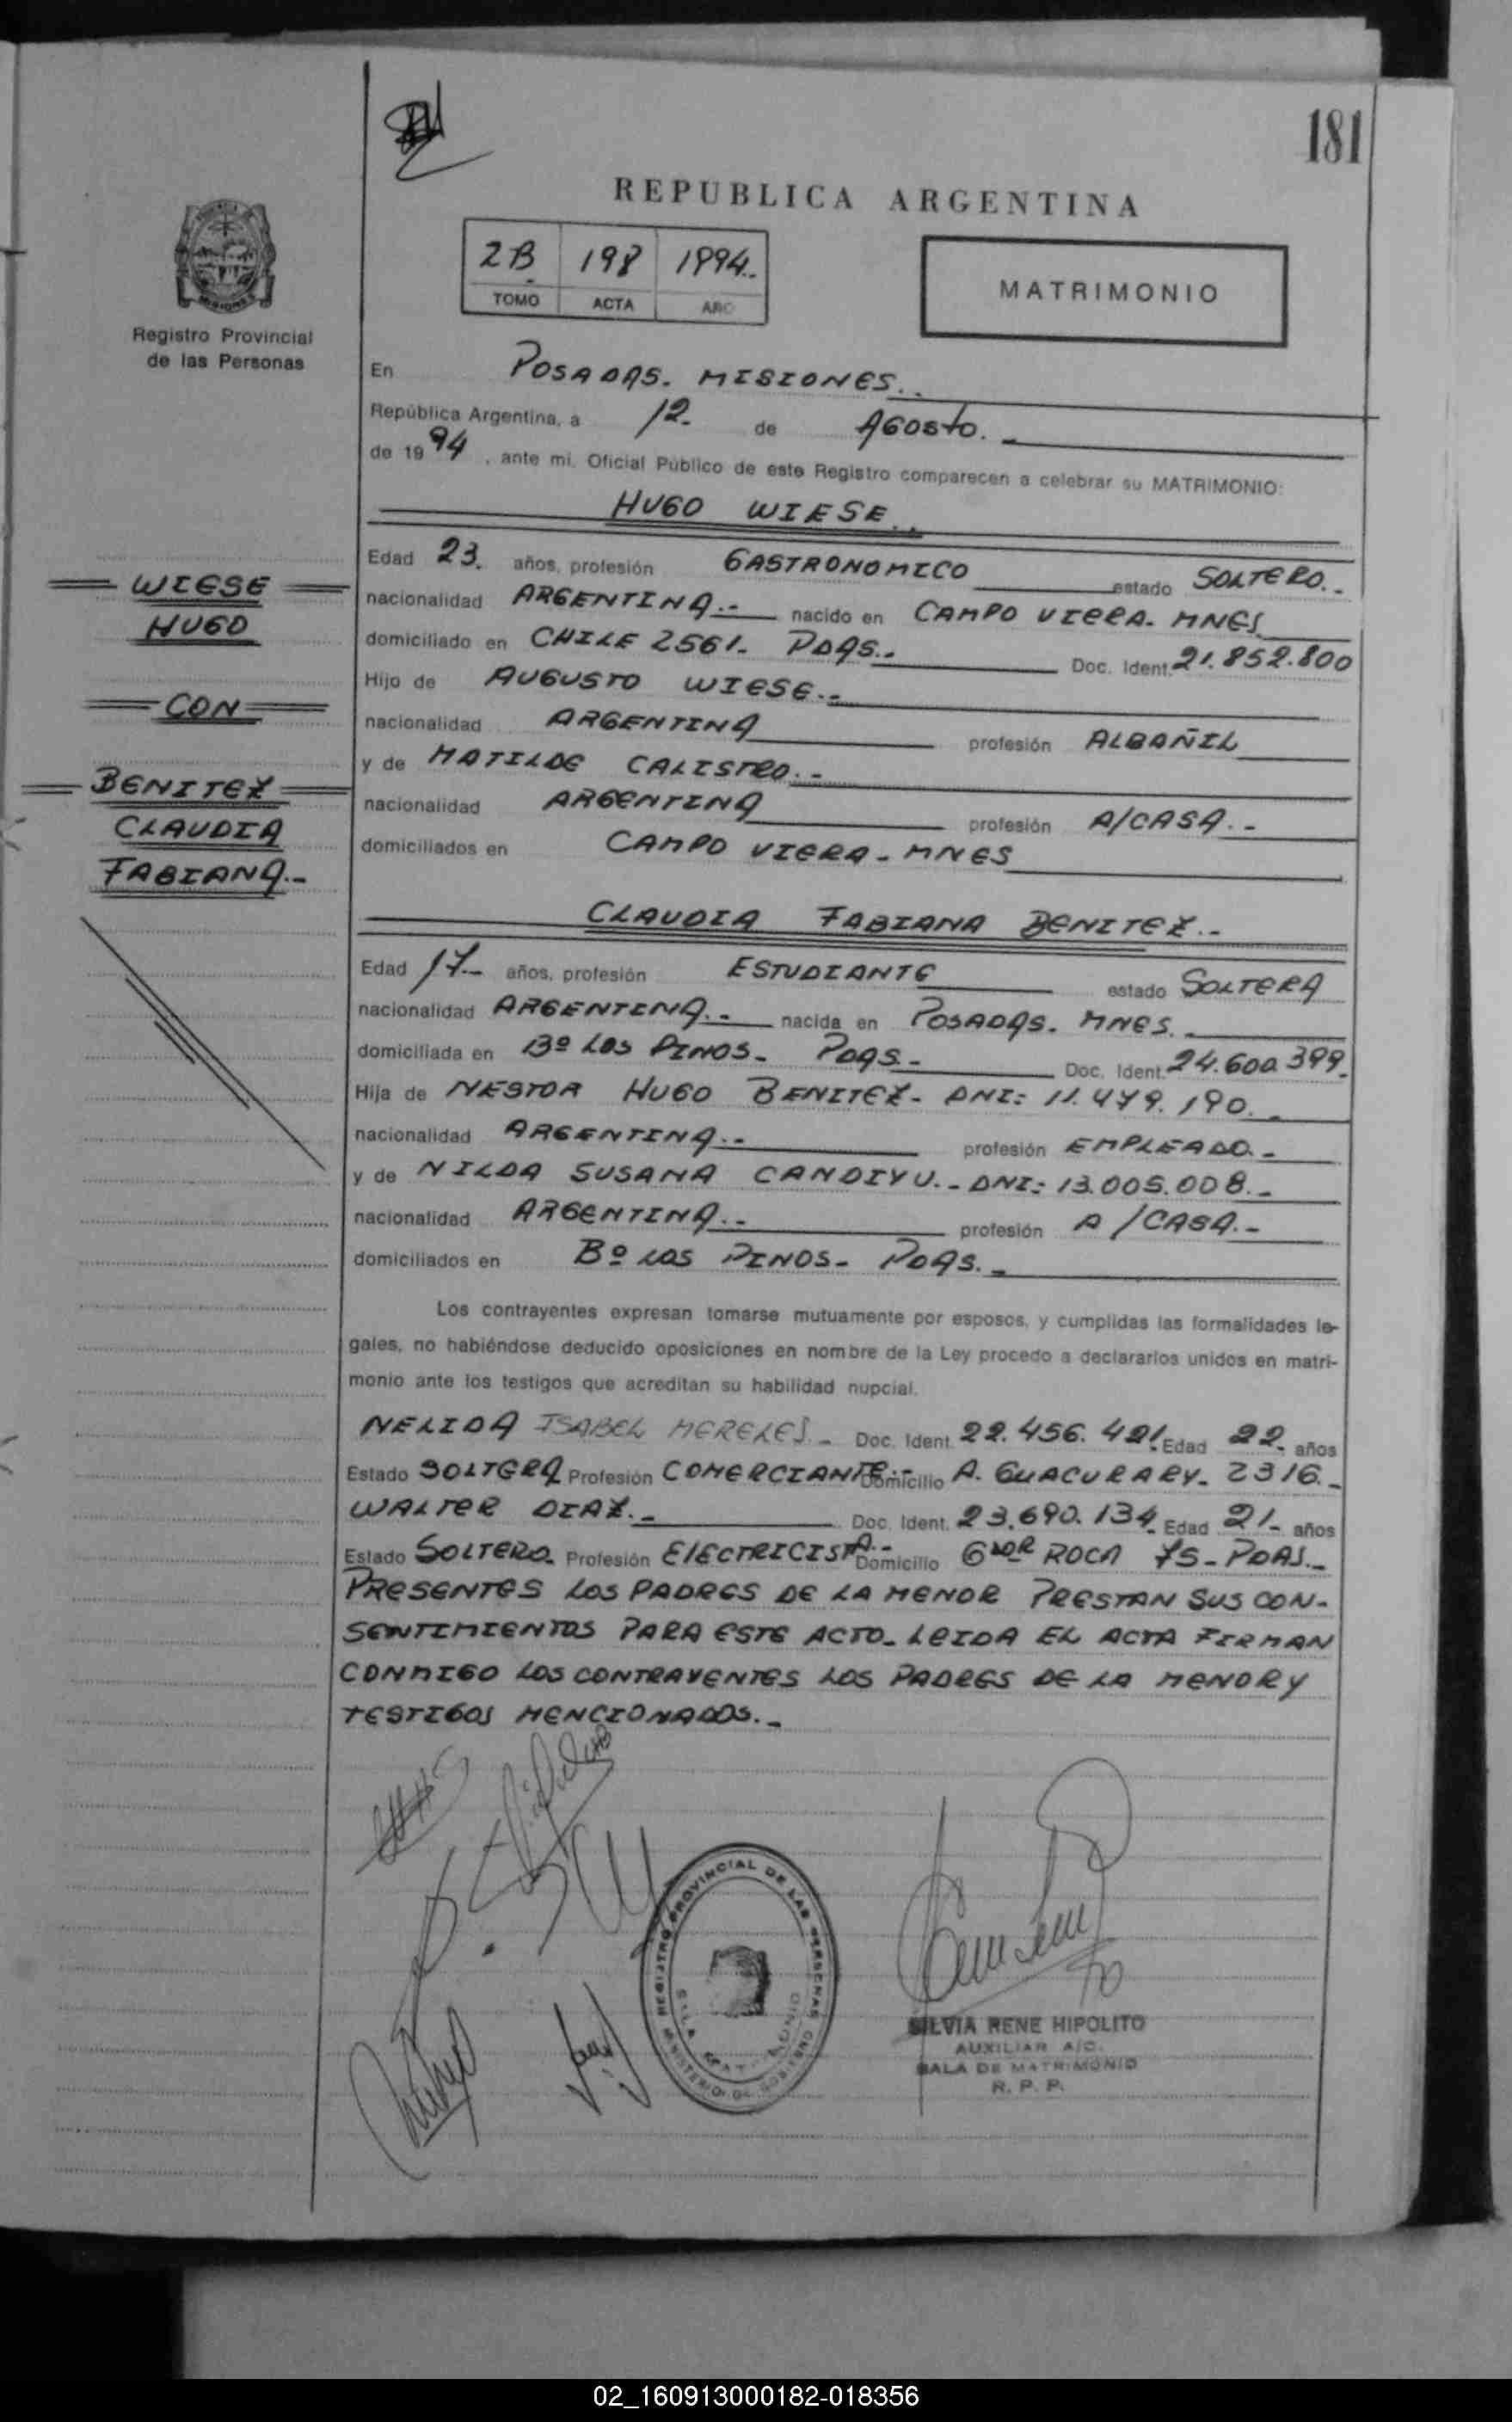 181
REPUBLICA ARGENTINA
2B 198 1994..
TOMO ACTA AÑO
MATRIMONIO
Registro Provincial
de las Personas
En POSADAS. MISIONES..
República Argentina, a 12. de AGOSTO.
de 1994, ante mi, Oficial Público de este Registro comparecen a celebrar su MATRIMONIO:
HUGO WIESE..
Edad 23. años, profesión GASTRONOMICO estado SOLTERO..
nacionalidad ARGENTINA.- nacido en CAMPO VIERA. MNES
domiciliado en CHILE 2561. PDAS.. Doc. Ident. 21.852.800
Hijo de AUGUSTO WIESE..
nacionalidad ARGENTINA profesión ALBAÑIL
y de MATILDE CALISTRO.-
nacionalidad ARGENTINA profesión A/CASA.-
domiciliados en CAMPO VIERA - MNES
WIESE
HUGO
CON
BENITEZ
CLAUDIA
FABIANA.-
CLAUDIA FABIANA BENITEZ.-
Edad 17.- años, profesión ESTUDIANTE estado SOLTERA
nacionalidad ARGENTINA.- nacida en POSADAS. MNES.
domiciliada en Bº LOS PINOS- PDAS.- Doc. Ident. 24.600.399.
Hija de NESTOR HUGO BENITEZ- DNI: 11.479.190.
nacionalidad ARGENTINA.- profesión EMPLEADO.-
y de NILDA SUSANA CANDIYU.- DNI: 13.005.008.-
nacionalidad ARGENTINA.- profesión A/CASA.-
domiciliados en Bº LOS PINOS- PDAS.-
Los contrayentes expresan tomarse mutuamente por esposos, y cumplidas las formalidades le-
gales, no habiéndose deducido oposiciones en nombre de la Ley procedo a declararlos unidos en matri-
monio ante los testigos que acreditan su habilidad nupcial.
NELIDA ISABEL MERELES.- Doc. Ident. 22.456.421. Edad 22. años
Estado SOLTERA Profesión COMERCIANTE.- Domicilio A. GUACURARY. 2316.-
WALTER DIAZ.- Doc. Ident. 23.690.134 Edad 21- años
Estado SOLTERO- Profesión ELECTRICISTA.- Domicilio GDOR ROCA 75- PDAS.-
PRESENTES LOS PADRES DE LA MENOR PRESTAN SUS CON-
SENTIMIENTOS PARA ESTE ACTO- LEIDA EL ACTA FIRMAN
CONMIGO LOS CONTRAYENTES LOS PADRES DE LA MENOR Y
TESTIGOS MENCIONADOS.-
REGISTRO PROVINCIAL DE LAS PERSONAS
MINISTERIO DE GOBIERNO
SALA MATRIMONIO
SILVIA RENE HIPOLITO
AUXILIAR A/C.
SALA DE MATRIMONIO
R. P. P.
02_160913000182-018356